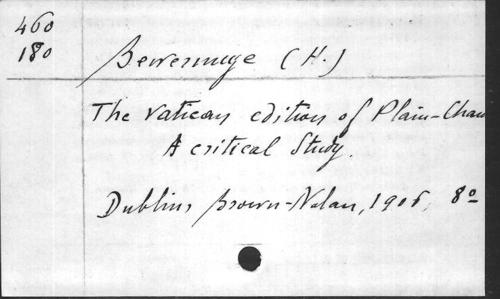 460
180
Bewerunge (H.)
The Vatican edition of Plain-Chan
A critical Study.
Dublin, Brown-Nolan, 1906, 8º